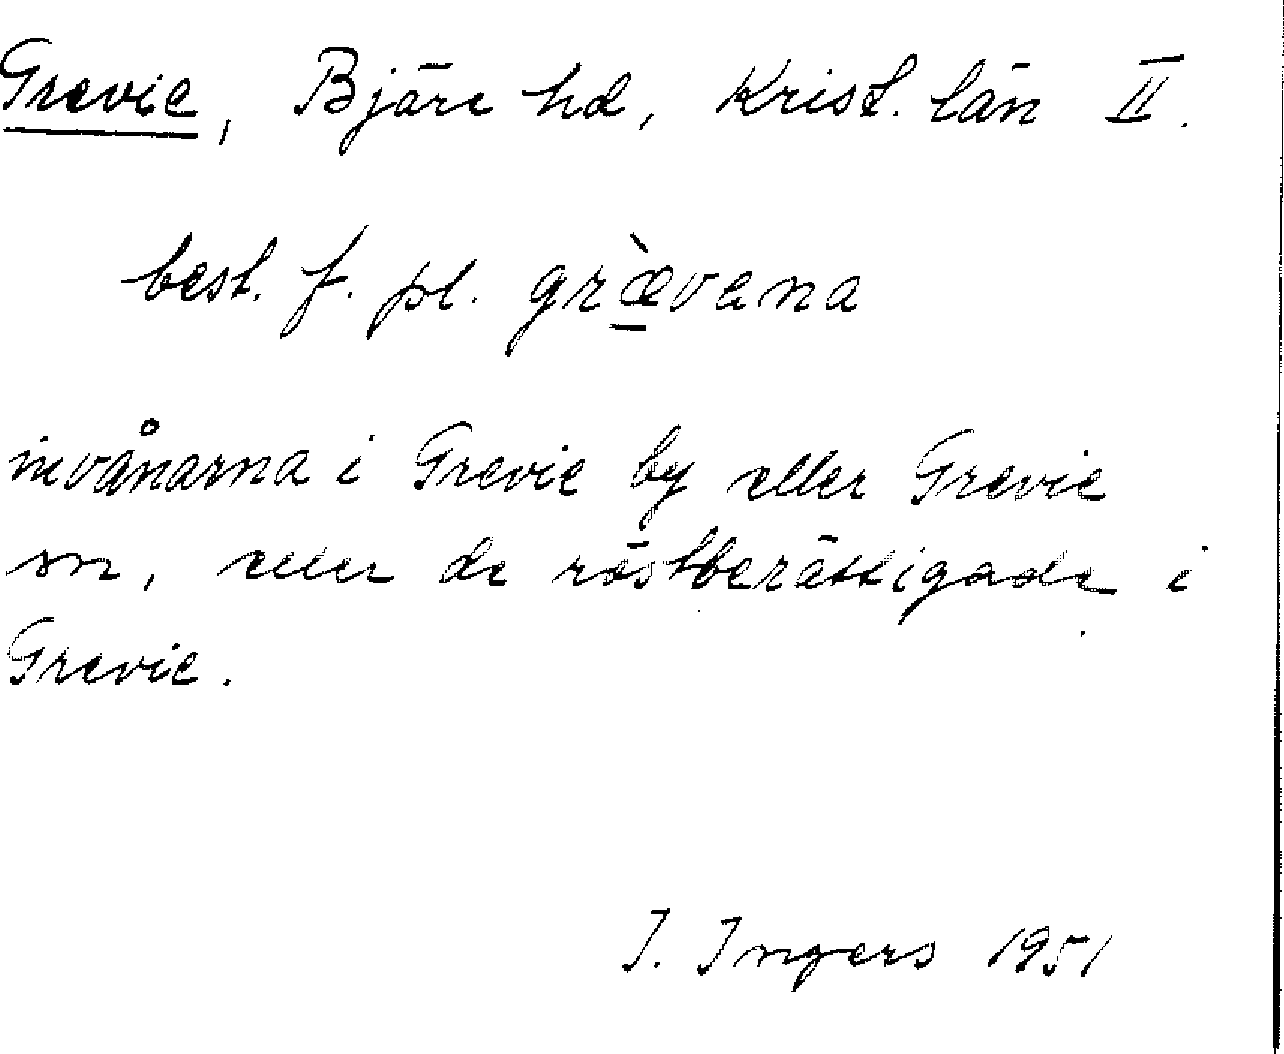 Grevie, Bjäre hd, Krist. län II.
best. f. pl. græ̀vena
invånarna i Grevie by eller Grevie
sn, eller de röstberättigade i
Grevie.
I. Ingers 1951